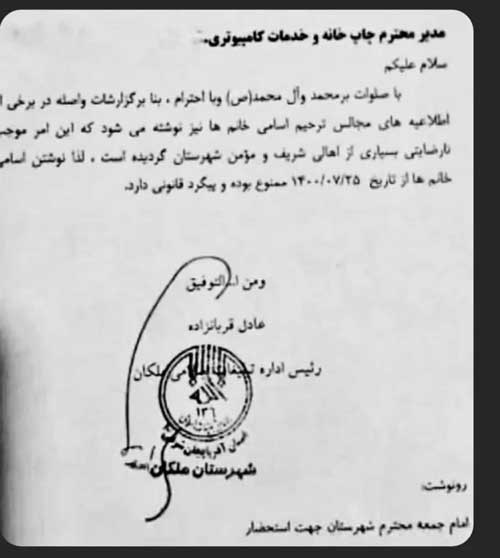 مدیر محترم چاپ خانه و خدمات کامپیوتری.
سلام علیکم
با صلوات برمحمد وآل محمد(ص) وبا احترام ، بنا برگزارشات واصله در برخی
اطلاعیه های مجالس ترحیم اسامی خانم ها نیز نوشته می شود که این امر موجب
نارضایتی بسیاری از اهالی شریف و مؤمن شهرستان گردیده است ، لذا نوشتن اسامی
خانم ها از تاریخ ۱۴۰۰/۰۷/۲۵ ممنوع بوده و پیگرد قانونی دارد.
ومن التوفیق
عادل قربانزاده
رئیس اداره تبلیغات اسلامی ملکان
۱۳۶
استان آذربایجان شرقی
شهرستان ملکان
رونوشت:
امام جمعه محترم شهرستان جهت استحضار